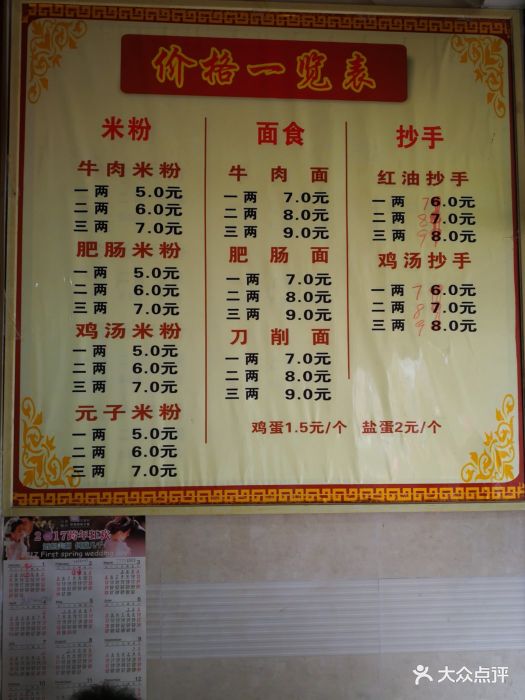 价格一览表
米粉
牛肉米粉
一两 5.0元
二两 6.0元
三两 7.0元
肥肠米粉
一两 5.0元
二两 6.0元
三两 7.0元
鸡汤米粉
一两 5.0元
二两 6.0元
三两 7.0元
元子米粉
一两 5.0元
二两 6.0元
三两 7.0元
面食
牛肉面
一两 7.0元
二两 8.0元
三两 9.0元
肥肠面
一两 7.0元
二两 8.0元
三两 9.0元
刀削面
一两 7.0元
二两 8.0元
三两 9.0元
抄手
红油抄手
一两 7 6.0元
二两 8 7.0元
三两 9 8.0元
鸡汤抄手
一两 7 6.0元
二两 8 7.0元
三两 9 8.0元
鸡蛋1.5元/个 盐蛋2元/个
2017跨年狂欢
2017 First spring wedding
大众点评